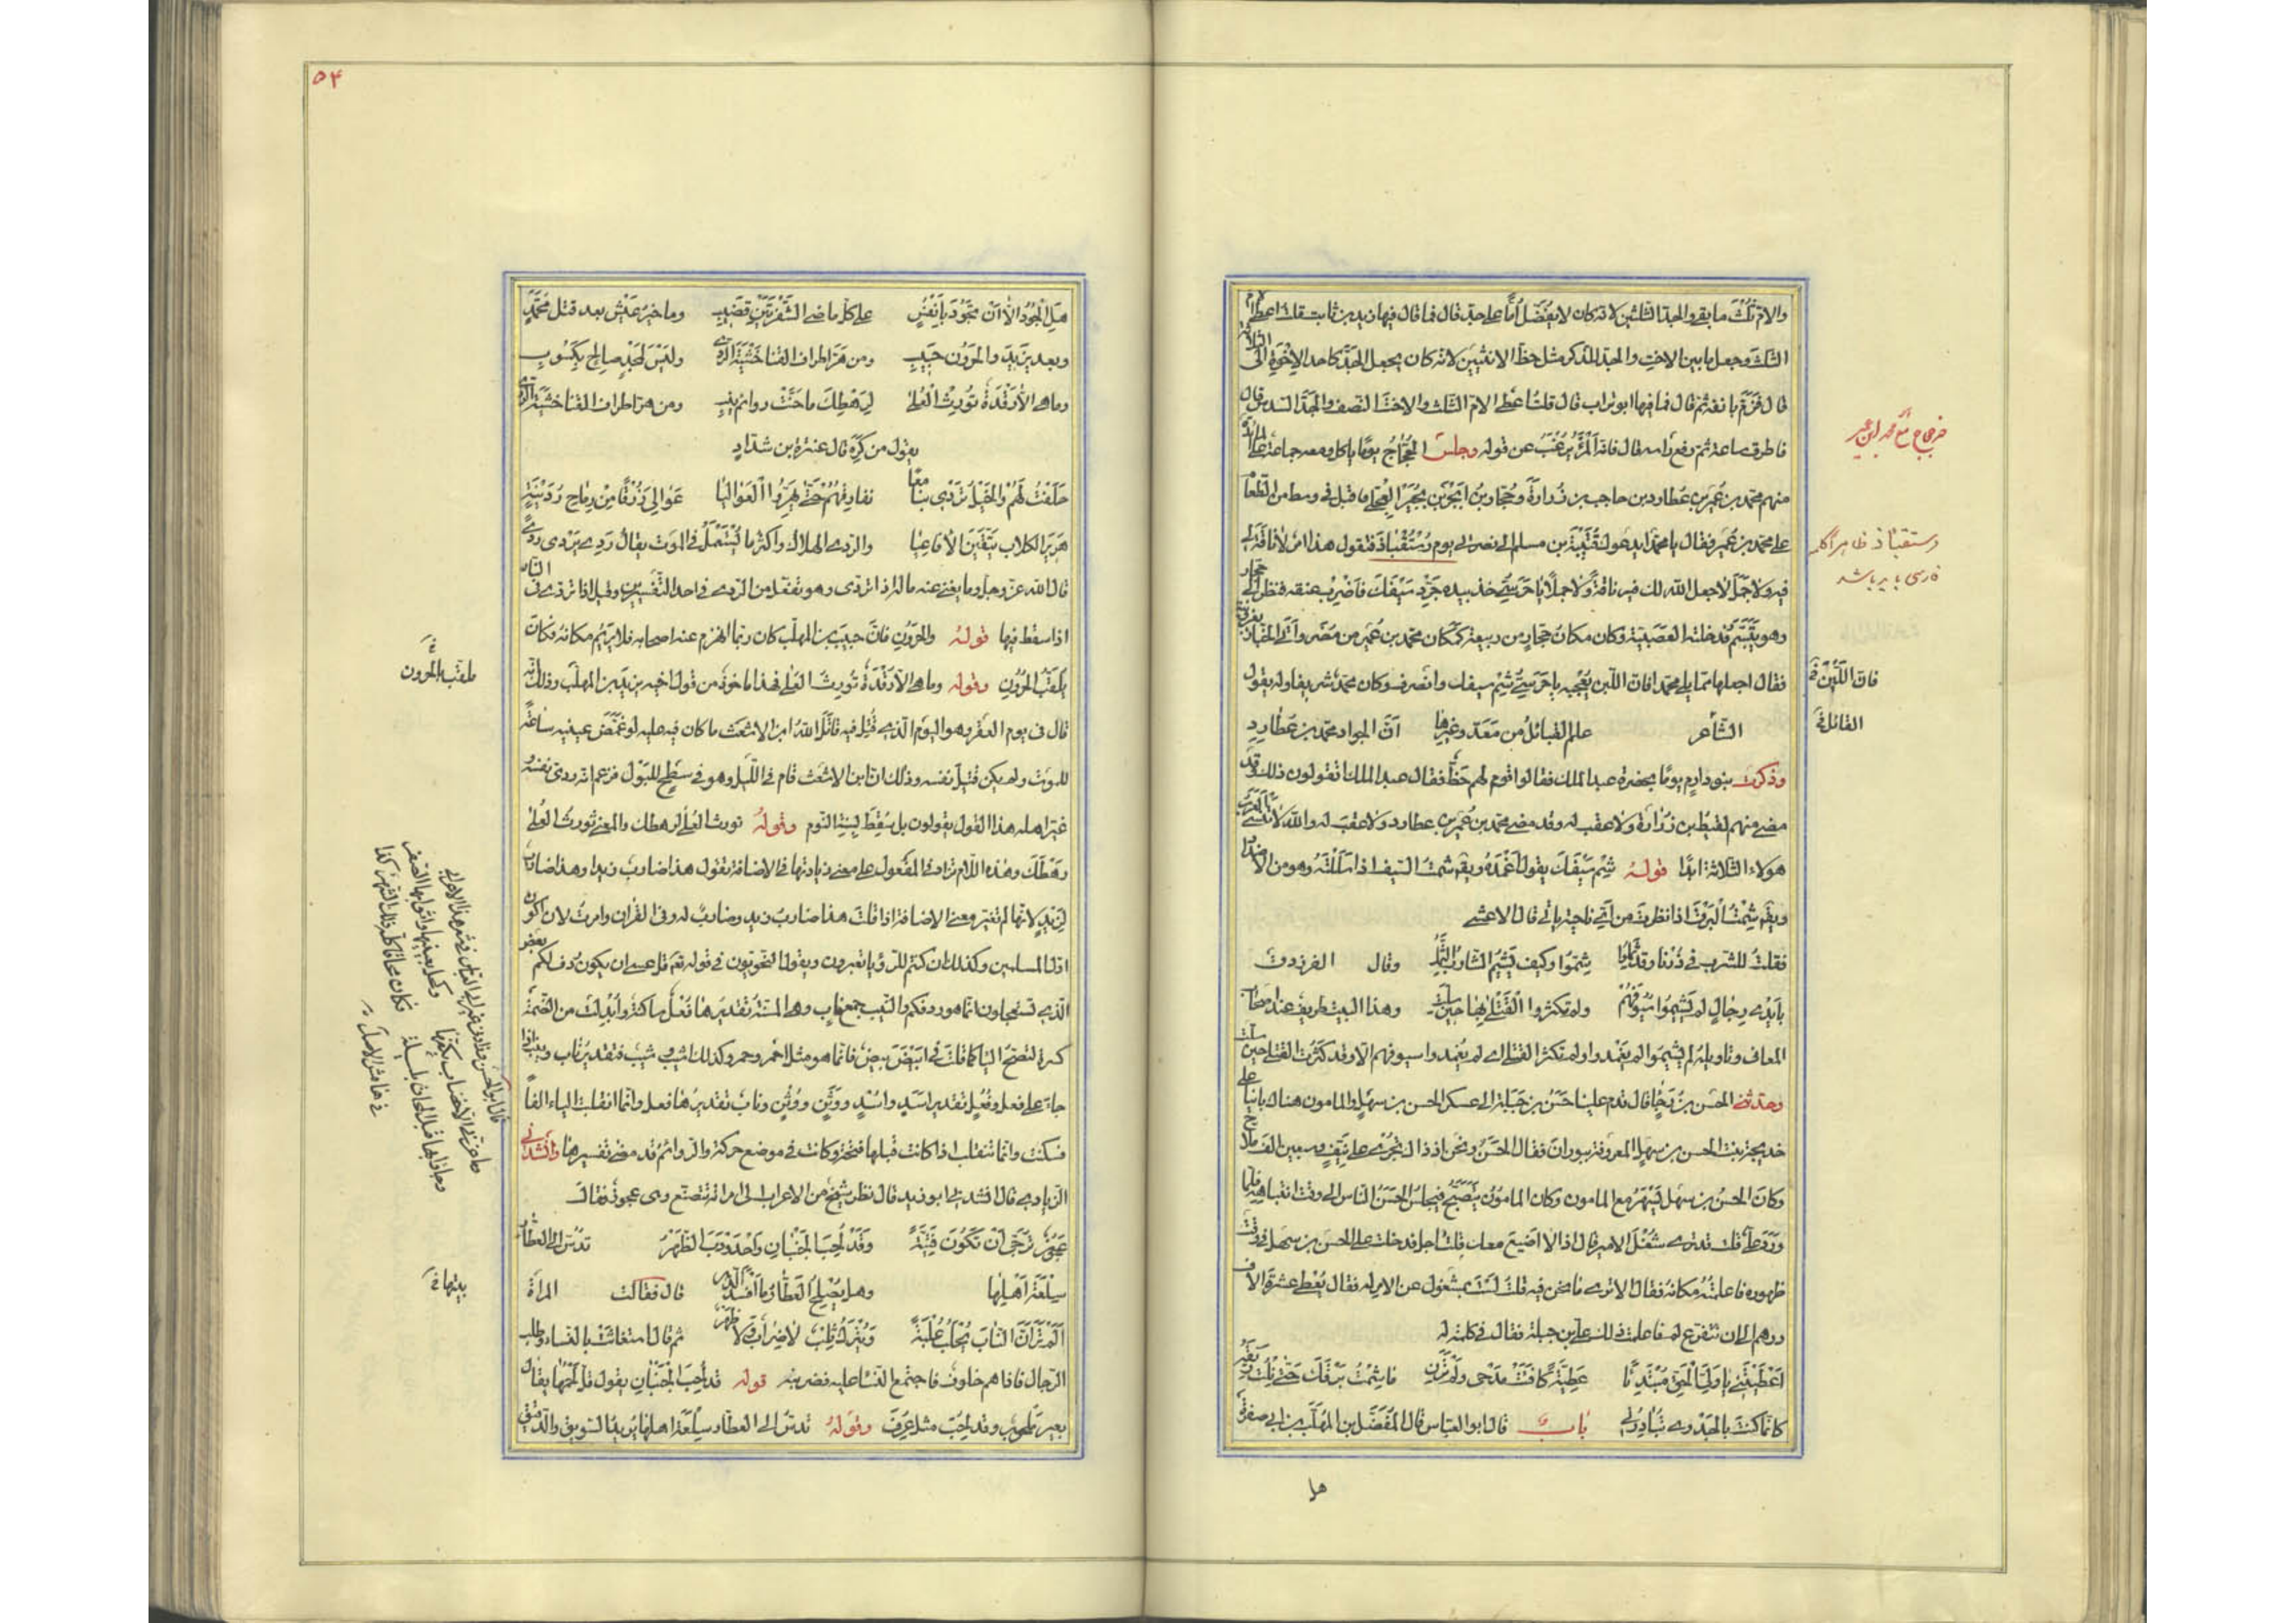 والامّ ثُلُثَ ما بقى والجدّ الثلثين لانّه كان لا يفضّل اُمّا على جدّ قال فما قال فيها زيد بن ثابت قلت اعطى الامّ
الثلث وجعل ما بين الاخت والجدّ للذكر مثل حظّ الانثيين لانه كان يجعل الجَدّ كاحد الاِخْوَةِ الى الثلاثة
قال فَزَمّ بانفه ثم قال فما قال فيها ابو تراب قال قلت اعطى الامّ الثلث والاخت النصف والجدّ السدس قال
فاطرق ساعة ثم رفع راسه فقال فانّه المَرْءُ يُرْغَبُ عن قوله وجلس الحَجّاجُ يومًا ياكل ومعه جماعة على المائدة
منهم محمد بن عُمَير بن عُطارد بن حاجب بن زُرارَة وحَجّار بن ابجَر بن بُجَيرٍ العجلى فاقبل فى وسطٍ من الطعام
على محمد بن عُمَير فقال يا محمد ايدعوك قُتَيْبَة بن مسلم الى نصرتى يوم رُسْتُقْباذَ فتقول هذا امر لا ناقة لى
فيه ولا جَمَل لا جعل الله لك فيه ناقةً ولا جملاً يا حَرَسِىّ خذ بيده وجَرِّد سَيْفَكَ فاَضْرِب عنقه فنظر الى حجّار
وهو يَتَبَسَّم فدخلته العصبيّة وكان مكان حجّار من ربيعة كمكان محمد بن عُمَير من مُضَر واتى الخبّاز بفرنيّة
فقال اجعلها ممّا يلى محمد افانّ اللّبن يُعْجِبه يا حَرَسِىّ شِمْ سيفك وانْصَرف وكان محمد شريفا وله يقول
الشّاعر علم القبائل من مَعَدّ وغيرها انّ الجواد محمد بن عُطاردِ
وذكرت بنو دارم يومًا بحضرة عبد الملك فقالوا قوم لهم حَظٌّ فقال عبد الملك اتقولون ذلك وقد
مضى منهم لقيط بن زُرارَة ولا عقب له وقد مضى محمد بن عُمَير بن عطارد ولا عقبَ له والله لا تنسى العرب
هولاء الثلاثة ابدًا قولهُ شِم سَيْفَكَ يقول اَغْمِدْهُ ويق شمت السّيف اذا سَلَلْتَهُ وهو من الاضداد
ويق شِمْتُ البرقَ اذا نظرت من اىّ ناحية ياتى قال الاعشى
فقلت للشرب فى دُرْنا وقد ثَمِلُوا شِيمُوا وكيف يَشِيمُ الشارب الثَّمِلُ وقال الفرزدق
بِاَيْدِى رِجالٍ لم يَشِيمُوا سُيُوفَهُمْ ولم تكثروا القَتْلى بها حِين سلّت وهذا البيت طريف عند اصحاب
المعانى وتاويله لم يَشِيمُوا لم يغمدوا ولم تكثر القتلى اى لم يغمدوا سيوفهم الّا وقد كَثُرت القتلى حين سلّت
وحدّثنى الحسن بن رَجاءٍ قال قدم علينا علىّ بن جَبَلة الى عسكر الحسن بن سهلٍ والمامون هناك بانيا على
خديجة بنت الحسن بن سهلٍ المعروفة ببوران فقال الحَسَنُ ونحن اذ ذاك نُجْرى على نَيّفٍ وسبعين الف ملّاح
وكانَ الحسنُ بن سهل يَسْهَرُ مع المامون وكان المامون يَتَصَبَّحُ فيجلس الحسَنُ للناس الى وقت انتباهه فلمّا
وَرَدَ علىّ قلت قد ترى شُغْلَ الامير قال اذًا لا اضيع معك قلت اجل فدخلت على الحسن بن سهل فى وقت
ظهوره فاعلمتُهُ مكانه فقال الا ترى ما نحن فيه قلت لستَ بمشغول عن الامر له فقال يُعْطى عشرة آلاف
درهم الى ان نتفرّغ له فاعلمت ذلك على بن جبلة فقال فى كلمة له
اَعْطَيْتَنِى يا وَلِىَّ الحَقّ مُبْتَدِئًا عَطِيّةً كافَتْ مَدْحى ولَمْ تَرَنِى فما شِمْتُ بَرْقَكَ حَتّى نِلْتُ رَيّقَهُ
كانّما كنتَ بالجَدْوى تُبادِرُنى باب قال ابو العباس قال المُفَضَّل بن المُهَلَّب بن ابى صفرة
هل
خرجاج مع محمد ابن عمير
رستقباذ ظاهرا كلمه
فارسى بايد باشد
فانّ اللَّبَنَ
القائل
۵۴
هَلِ الْجُودُ اِلّا اَنْ نَجُودَ بِاَنْفُسٍ على كلّ ماضى الشَّفْرَتَيْنِ قَضِيبِ وما خيرُ عَيْشٍ بعد قتل مُحَمَّدٍ
وبعد يَزيدَ والحَرُونِ حَبِيبِ ومن هَزَّ اطراف القنا خَشْيَةَ الرّدى ولَيْسَ لمَجْدٍ صالِح بِكَسُوبِ
وما هى الّا رَقْدَةٌ تُورِثُ العُلَى لِرَهْطِكَ ما حَنَّتْ روائم نِيبِ ومن هزّ اطراف القنا خشيَةَ الرّدى
يقول من كَرّه قال عنترة بن شدّادٍ
حَلَفْتُ لَهُمْ والخَيْلُ تَرْدِى بنا مَعًا نفارقهُمْ حَتّى يَهِرُّوا الْعَوالِيَا عَوالِىَ زُرْقًا مِنْ رِماح رُدَيْنَةٍ
هَرِيرَ الكلاب يَتّقينَ الافاعِيَا والرّدى الهلاك واكثر ما يُسْتَعْمَلُ فى الموت يقال رَدِىَ يَرْدَى رَدًى
قال الله عزّ وجلّ وما يغنى عنه ماله اذا تردّى وهو تفعّل من الرّدى فى احد التّفسيرين وقيل اذا تردّى فى النار
اذا سقط فيها قولهُ والحَرُونِ فانّ حبيب بن المهلّب كان ربّما انهزم عنه اصحابه فلا يَرِيمُ مكانه فكان
يلقّبُ الحرون وقوله وما هى الّا رَقْدَةٌ تُورِثُ العلى فهذا ماخوذ من قول اخيه يزيد بن المهلّب وذلك انّه
قال فى يوم العقر وهو اليوم الّذى قُتِلَ فيه قاتَلَ اللّهُ ابن الاشعث ما كان عليه لو غَمَّضَ عينيه ساعةً
للموت ولم يكن قَتِيلَ نفسه وذلك انّ ابن الاشعث قام فى اللّيل وهو فى سطحٍ للبول فزعم انّه ردّى نفسهُ
غير اهل هذا القول يقولون بل سَقَط لِسِنَةِ النّوم وقولهُ تورث العُلى لرهطك والمعنى تورث العُلى
رَهْطَكَ وهذه اللّام تزاد فى المفعول على معنى زيادتها فى الاضافة تقول هذا ضارب زيدا وهذا ضاربٌ
لِزَيدٍ لانّها لم تغيّر معنى الاضافة اذا قلت هذا ضاربُ زيدٍ وضاربٌ له وفى القرآن وامرت لان اكون
اوّل المسلمين وكذلك ان كنتم للرّؤيا تعبرون ويقول النحويّون فى قوله تعَ قل عسى ان يكون رَدِفَ لكم بعض
الّذى تستعجلون انّما هو ردفكم والنّيب جمع نابٍ وهى المُسِنّةُ تقديرها فُعْل ساكنة وابدلتَ من الضمّة
كسرة لتصحّ اليا كما قلت فى ابيَضَ بِيض فانّما هو مثل احمر وحمر وكذلك اشيب وشيب فتقدير ناب ونيب اذا
جاءَ على فَعَل وفُعْلٍ تقدير اَسَدٍ واُسْدٍ ووَثَنٍ ووُثْنٍ وناب تقديرها فَعَل وانّما انقلبت الياء الفاً
فسكنت وانّما تنقلب اذا كانت قبلها فتحة وكانت فى موضع حركة والرّوائم قد مضى تفسيرها وانشدنى
الزيادى قال انشدنى ابو زيد قال نظر شيخ من الاعراب الى امراته تتصنّع وهى عجوز فقال
عجُوزٌ تُرَجّى اَنْ تَكُونَ فَتِيَّةً وَقَدْ لُحِبَ الجَنْبانِ واحْدَوْدَبَ الظّهْرُ تَدُسّ الى العطّار
سِلْعَةَ اَهْلِها وهل يُصْلِحُ العَطّارُ ما اَفْسَدَ الدّهر قال فقالت المراة
اَلَمْ تَرَ اَنّ النّابَ تُحْلَبُ عُلْبَةً وَيُتْرَكُ ثِلْبٌ لا ضِرابٌ ولا ظَهْرُ ثم قال استغاثت بالنساء وطلب
الرّجال فاذا هم خلوف فاجتمع النساء عليه فضربنه قوله قد لُحِبَ الجَنْبانِ يقول قلّ لَحْمُها يقال
بعير ملحوبٌ وقد لُحِبَ مثل عُرِقَ وقولهُ تدسّ الى العطّار سِلْعَةَ اهلها يريد السّويق والدّقيق
يلقّب بالحرون
بيتها